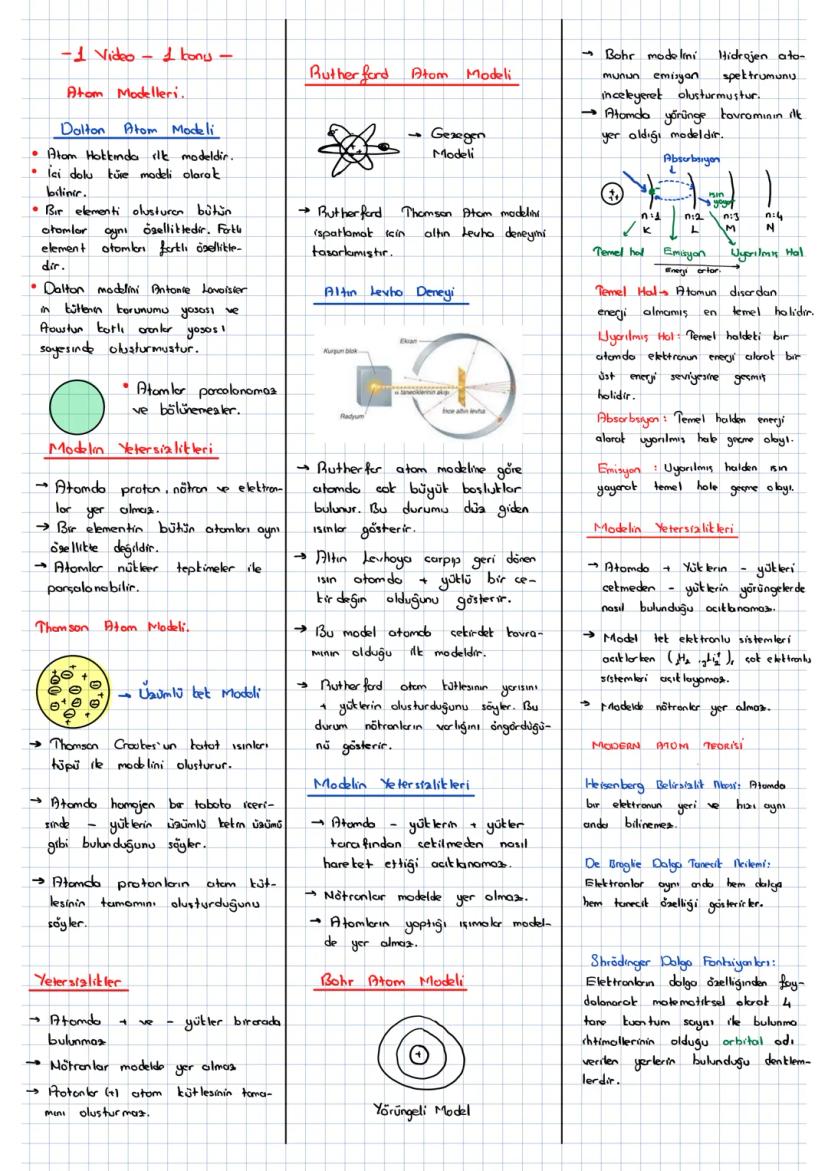 -1 Video - 1 konu -
Atom Modelleri.
Dalton Atom Modeli
• Atom Hakkında ilk modeldir.
• İci dolu küre modeli olarak
bilinir.
• Bir elementi olusturan bütün
atomlar aynı özelliktedir. Farklı
element atomları farklı özellikte-
dir.
• Dalton modelini Antonie Lavoisier
in kütlenin korunumu yasası ve
katlı oranlar yasası
sayesinde olusturmustur.
• Atomlar parcalanamaz
ve bölünemezler.
Modelin Yetersizlikleri
→ Atomda proton, nötron ve elektron-
lar yer almaz.
→ Bir elementin bütün atomları aynı
özellikte değildir.
→ Atomlar nükleer tepkimeler ile
parçalanabilir.
Thomson Atom Modeli.
→ Üzümlü kek Modeli
→ Thomson Crookes'un katot ısınları
tüpü ile modelini olusturur.
→ Atomda homojen bir tabaka iceri-
sinde - yüklerin üzümlü kekin üzümü
gibi bulunduğunu söyler.
→ Atomda protonların atom küt-
lesinin tamamını oluşturduğunu
söyler.
Yetersizlikler
→ Atomda + ve - yükler birarada
bulunmaz
→ Nötronlar modelde yer almaz
→ Protonlar (+) atom kütlesinin tama-
mını olusturmaz.
Rutherford Atom Modeli
→ Gezegen
Modeli
→ Rutherford Thomson Atom modelini
ispatlamak icin altın levha deneyini
tasarlamıştır.
Altın Levha Deneyi
Ekran
Kurşun blok
α taneciklerinin akışı
Radyum
İnce altın levha
→ Rutherfor atom modeline göre
atomda cok büyük bosluklar
bulunur. Bu durumu düz giden
ısınlar gösterir.
→ Altın Levhaya carpıp geri dönen
ısın atomda + yüklü bir ce-
kirdeğin olduğunu gösterir.
→ Bu model atomda cekirdek kavra-
mının olduğu ilk modeldir.
→ Rutherford atom kütlesinin yarısını
+ yüklerin olusturduğunu söyler. Bu
durum nötronların varlığını öngördüğü-
nü gösterir.
Modelin Yetersizlikleri
→ Atomda - yüklerin + yükler
tarafından cekilmeden nasıl
hareket ettiği acıklanamaz.
→ Nötronlar modelde yer almaz.
→ Atomların yaptığı ışımalar model-
de yer almaz.
Bohr Atom Modeli
+
Yörüngeli Model
→ Bohr modelini Hidrojen ato-
munun emisyon spektrumunu
inceleyerek olusturmuştur.
→ Atomda yörünge kavramının ilk
yer aldığı modeldir.
Absorbsiyon
ısın
yayar
n:1 n:2 n:3 n:4
K L M N
Temel hal Emisyon Uyarılmış Hal
Enerji artar.
Temel Hal→ Atomun dısardan
enerji almamış en temel halidir.
Uyarılmış Hal: Temel haldeki bir
atomda elektronun enerji alarak bir
üst enerji seviyesine geçmiş
halidir.
Absorbsiyon: Temel halden enerji
alarak uyarılmıs hale geçme olayı.
Emisyon : Uyarılmış halden ısın
yayarak temel hale geçme olayı.
Modelin Yetersizlikleri
→ Atomda + Yüklerin - yükleri
cekmeden - yüklerin yörüngelerde
nasıl bulunduğu acıklanamaz.
→ Model tek elektronlu sistemleri
acıklarken cok elektronlu
sistemleri acıklayamaz.
→ Modelde nötronlar yer almaz.
MODERN ATOM TEORİSİ
Heisenberg Belirsizlik İlkesi: Atomda
bir elektronun yeri ve hızı aynı
anda bilinemez.
De Broglie Dalga Tanecik İkilemi:
Elektronlar aynı anda hem dalga
hem tanecik özelliği gösterirler.
Shrödinger Dalga Fonksiyonları:
Elektronların dalga özelliğinden fay-
dalanarak matematiksel olarak 4
tane kuantum sayısı ile bulunma
ihtimallerinin olduğu orbital adı
verilen yerlerin bulunduğu denklem-
lerdir.